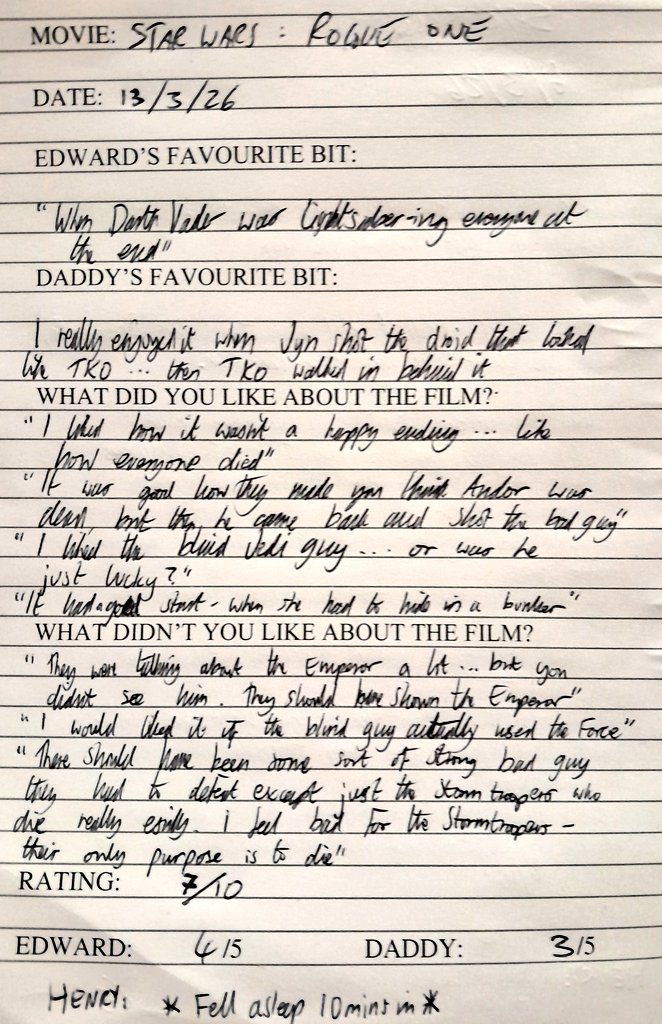 MOVIE: STAR WARS : ROGUE ONE
DATE: 13/3/26
EDWARD'S FAVOURITE BIT:
"When Darth Vader was lightsaber-ing everyone at
the end"
DADDY'S FAVOURITE BIT:
I really enjoyed it when Jyn shot the droid that looked
like TKO ... then TKO walked in behind it
WHAT DID YOU LIKE ABOUT THE FILM?
"I liked how it wasn't a happy ending ... like
how everyone died"
"It was good how they made you think Andor was
dead, but then he came back and shot the bad guy"
"I liked the blind Jedi guy ... or was he
just lucky?"
"It had a good start - when she had to hide in a bunker"
WHAT DIDN'T YOU LIKE ABOUT THE FILM?
"They were talking about the Emperor a lot ... but you
didn't see him. They should have shown the Emperor"
"I would liked it if the blind guy actually used the Force"
"There should have been some sort of strong bad guy
they had to defeat except just the stormtroopers who
die really easily. I feel bad for the Stormtroopers -
their only purpose is to die"
RATING: 7/10
EDWARD: 4/5 DADDY: 3/5
HENRY: * Fell asleep 10mins in *